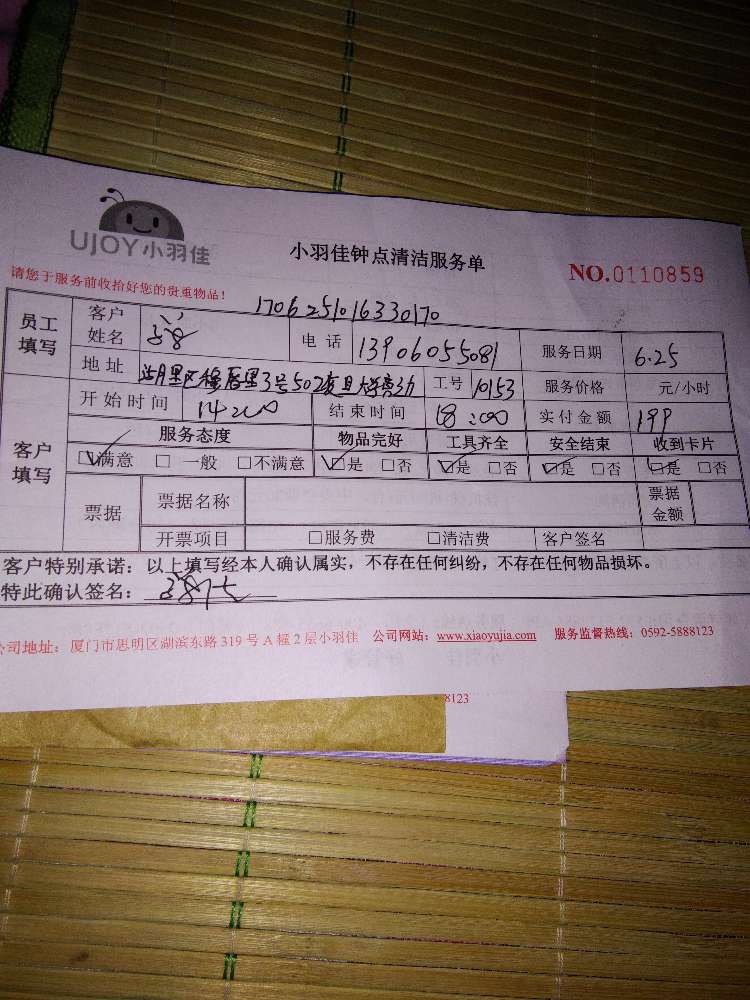 UJOY小羽佳
小羽佳钟点清洁服务单
NO.0110859
请您于服务前收拾好您的贵重物品！
1706251016330170
员工填写
客户姓名
电话 13906055081 服务日期 6.25
地址 湖里区 里3号502 工号 10153 服务价格 元/小时
客户填写
开始时间 14:00 结束时间 18:00 实付金额 199
服务态度 物品完好 工具齐全 安全结束 收到卡片
☑满意 □一般 □不满意 ☑是 □否 ☑是 □否 ☑是 □否 ☑是 □否
票据 票据名称 票据金额
开票项目 □服务费 □清洁费 客户签名
客户特别承诺：以上填写经本人确认属实，不存在任何纠纷，不存在任何物品损坏。
特此确认签名：
公司地址：厦门市思明区湖滨东路319号A幢2层小羽佳 公司网站：www.xiaoyujia.com 服务监督热线：0592-5888123
8123